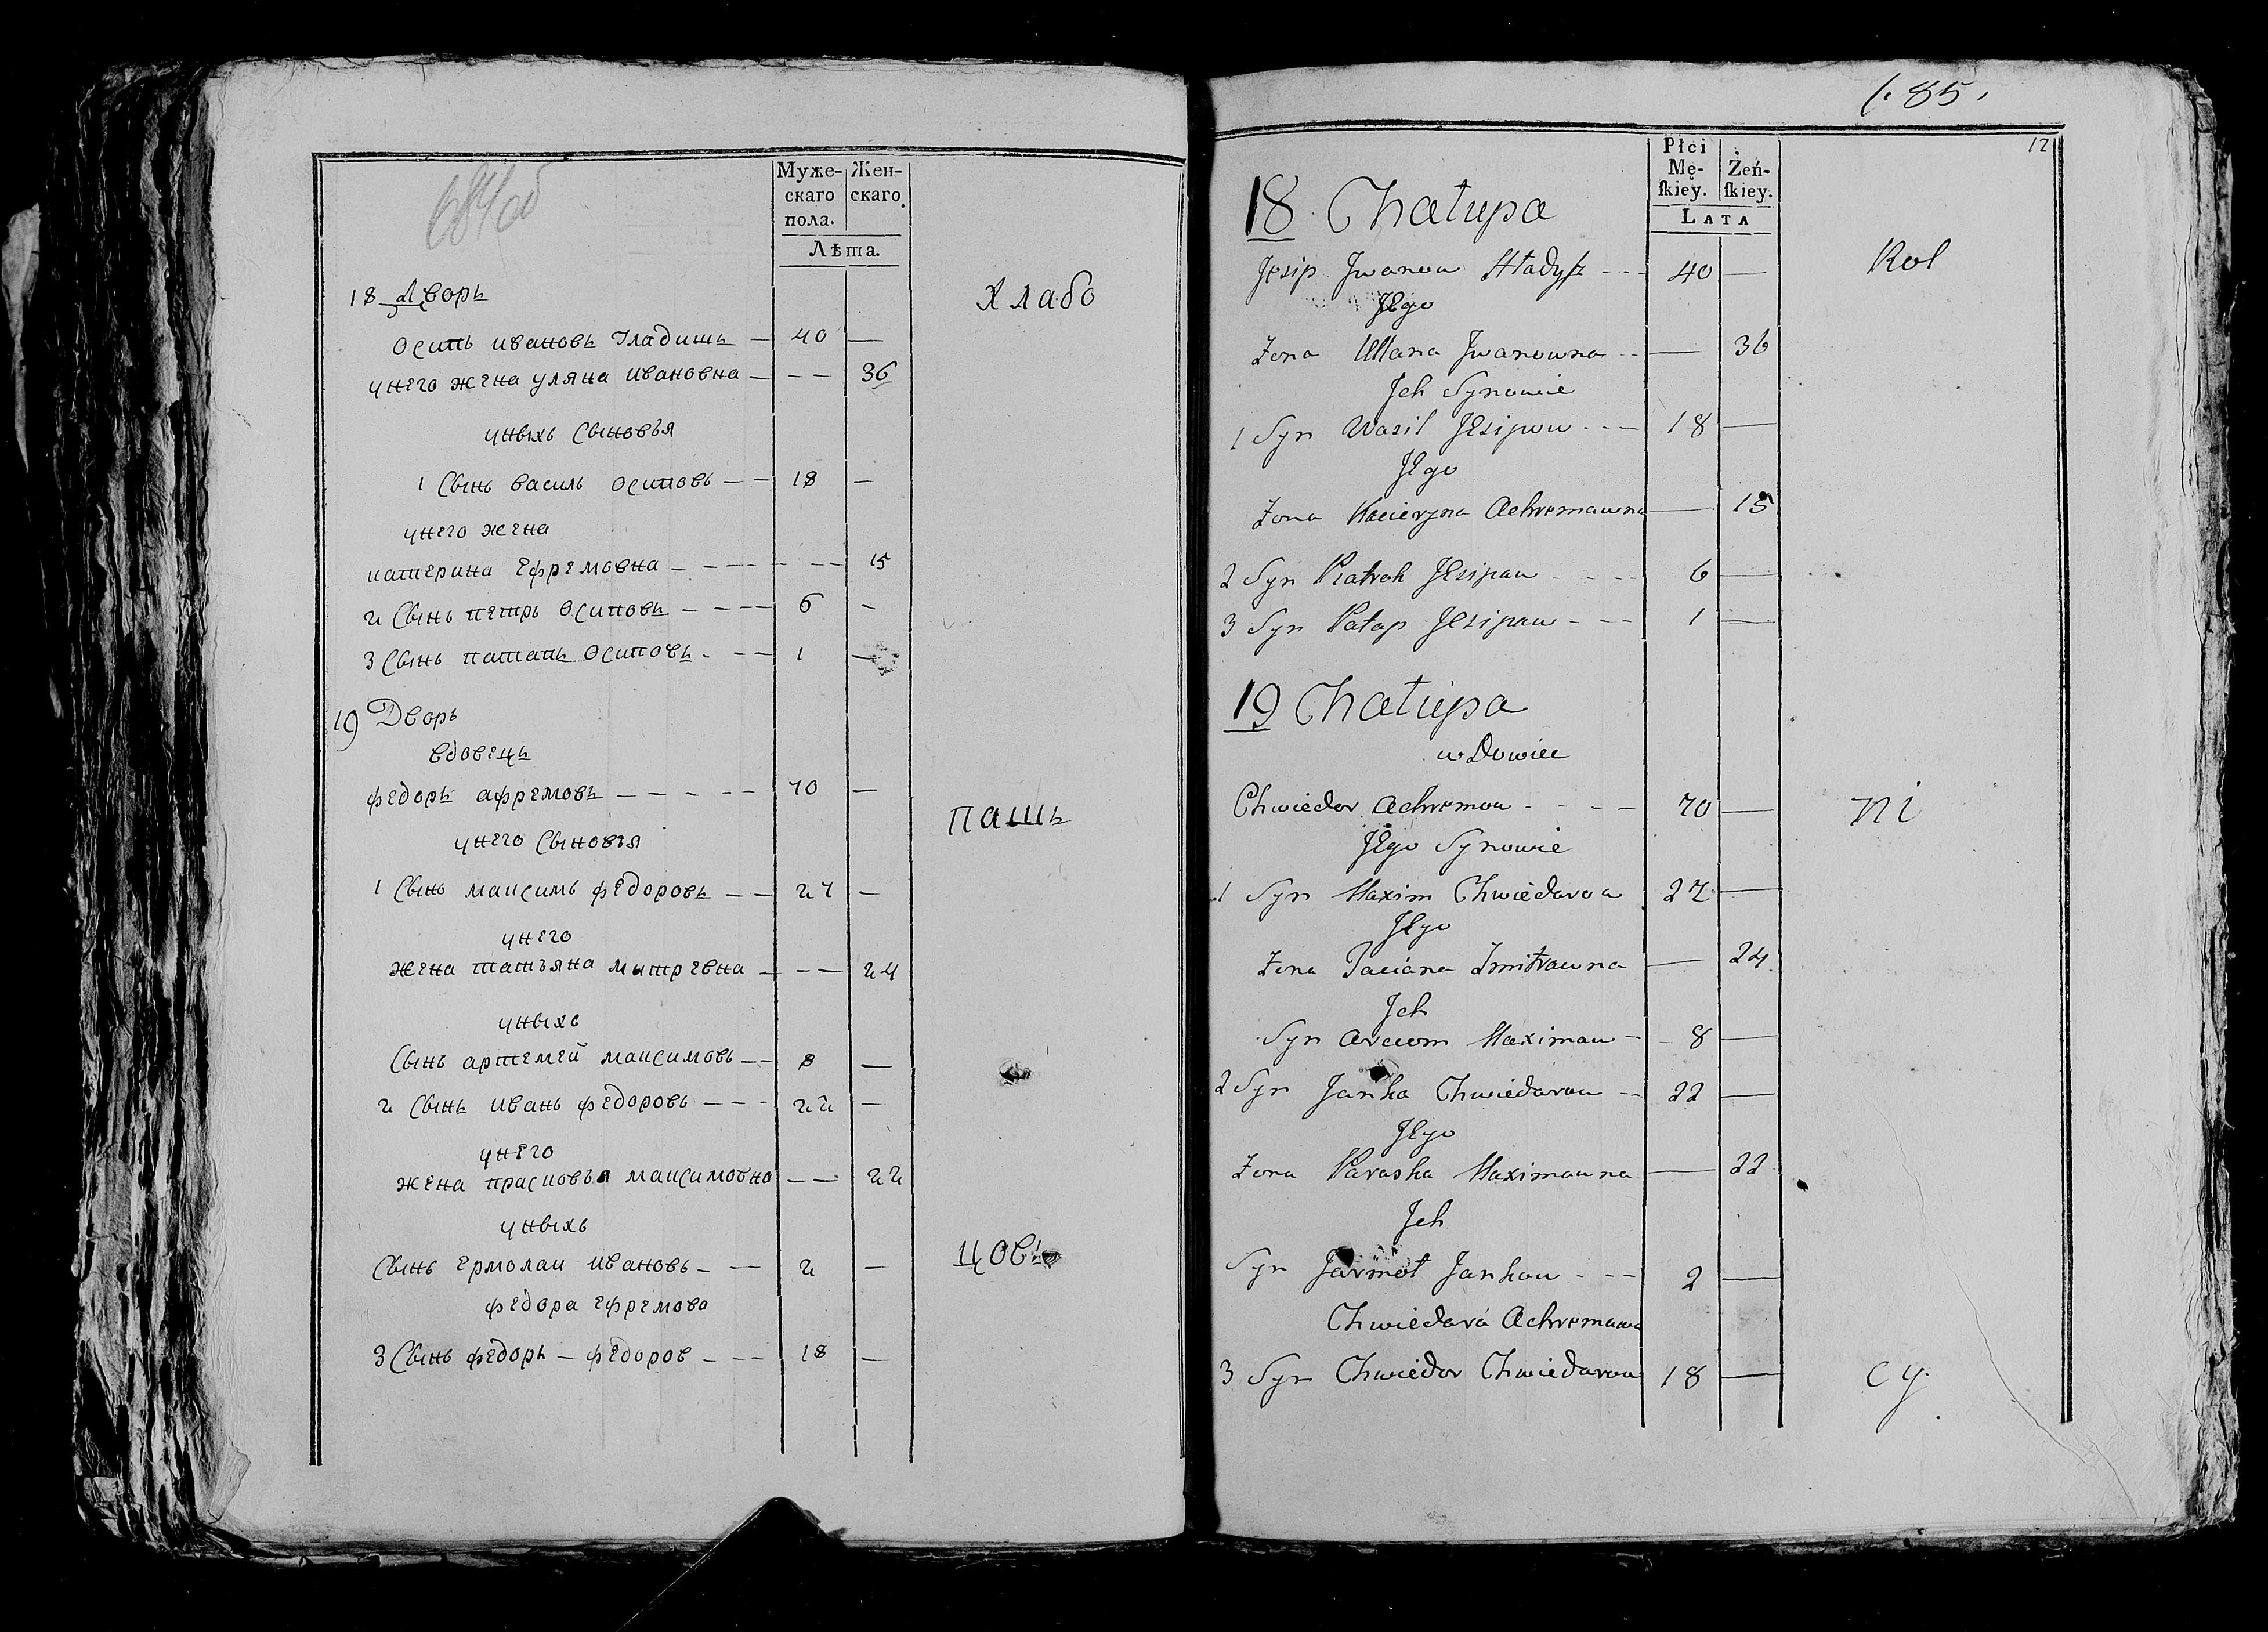 684об
Муже-
скаго
пола.
Жен-
скаго.
Лѣта.
18 Дворъ
Хлабо
Осипъ ивановъ Гладишъ — 40 —
унего жена уляна ивановна — — — 36
уныхъ Сыновья
1 Сынъ василь осиповъ — — 18 —
унего жена
катерина Ефремовна — — — — — — 15
2 Сынъ петръ Осиповъ — — — — 6 —
3 Сынъ патапъ Осиповъ — — — 1 —
19 Дворъ
вдовецъ
федоръ афремовъ — — — — — 70 —
пашъ
унего Сыновья
1 Сынъ максимъ федоровъ — — 27 —
унего
жена татьяна мытревна — — — 24
уныхъ
Сынъ артемей максимовъ — — 8 —
2 Сынъ иванъ федоровъ — — — 22 —
унего
жена прасковья максимовна — — 22
уныхъ
цовъ
Сынъ Ермолаи ивановъ — — — 2 —
федора Ефремова
3 Сынъ федоръ — федоров — — — 18 —
85
12
Płci
Mę-
ſkiey.
Żeń-
ſkiey.
LATA
18 Chałupa
Jesip Jwanou Hładysz — — 40 —
Kol
JEgo
Zona Ullana Jwanowna — — — 36
Jch Synowie
1 Syn Wasil JEsipow — — — 18 —
JEgo
Zona Kacieryna Achremawna — 15
2 Syn Piatrok JEsipau — — — 6 —
3 Syn Patap JEsipau — — — 1 —
19 Chałupa
wDowiec
Chwiedor Achremou — — — — 70 —
ni
JEgo Synowie
1 Syn Maxim Chwiedarou 27 —
JEgo
Zona Taciana Zmitrawna — 24
Jch
Syn Arciom Maximau — — 8 —
2 Syn Janka Chwiedarou — — 22 —
JEgo
Zona Paraska Maximauna — 22
Jch
Syn Jarmoł Jankou — — — 2 —
Chwiedara Achremawa
3 Syn Chwiedor Chwiedarou 18 —
cy.